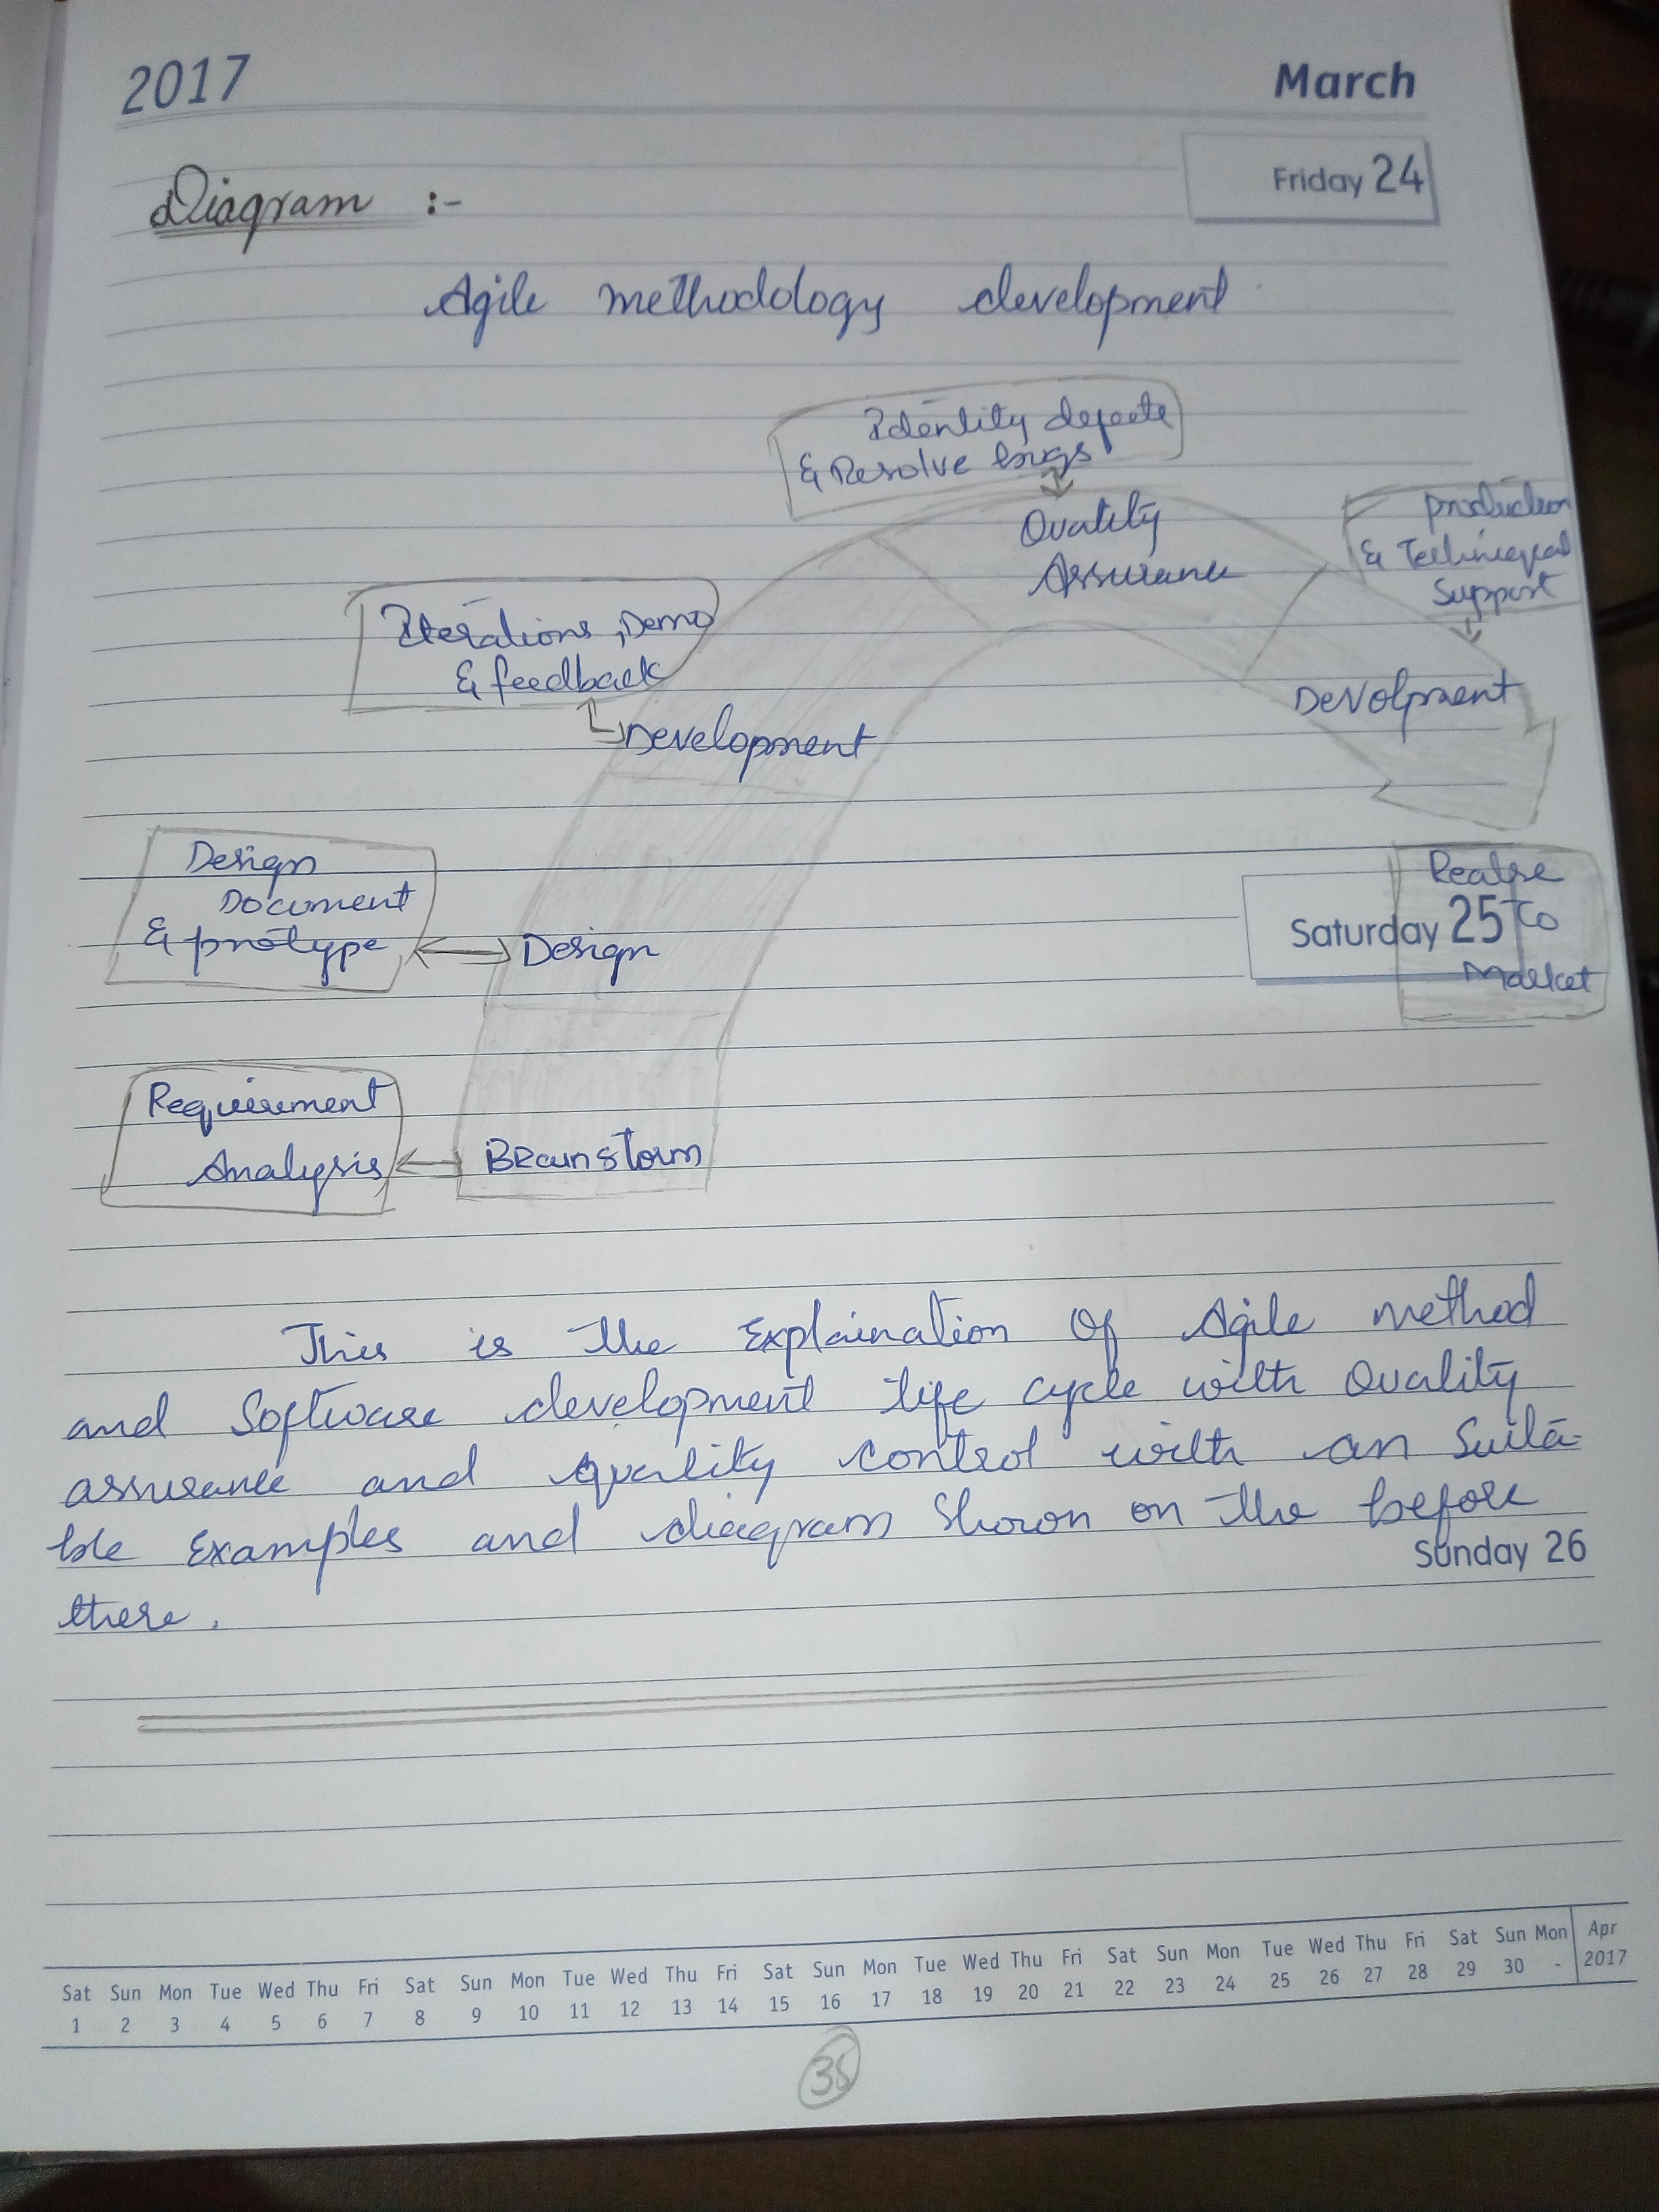 2017
March
Friday 24
Diagram :-
Agile methodology development
Identity defects
& Resolve bugs
Quality
Assurance
production
& Techniqcal
Support
Iterations, Demo
& feedback
Development
Devolpment
Design
Document
& prototype
Design
Realse
Saturday 25
to
Market
Requirement
Analysis
Brainstorm
This is the Explaination Of Agile method
and Software development life cycle with Quality
assurance and quality control with an Suita-
ble Examples and diagram Shown on the before
Sunday 26
there.
Sat Sun Mon Tue Wed Thu Fri Sat Sun Mon Tue Wed Thu Fri Sat Sun Mon Tue Wed Thu Fri Sat Sun Mon Tue Wed Thu Fri Sat Sun Mon Apr
1 2 3 4 5 6 7 8 9 10 11 12 13 14 15 16 17 18 19 20 21 22 23 24 25 26 27 28 29 30 - 2017